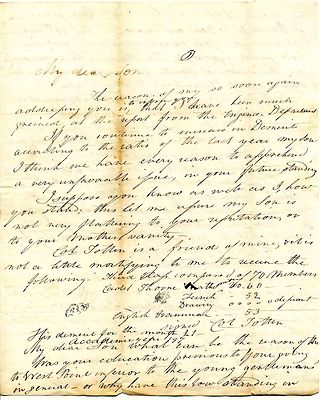 My dear Son
The reason of my so soon again
addressing you is that I have been much
grieved, at the report from the Engineer Department
If you continue to increase in Demerit
according to the ratio of the last year my son
I think we have every reason to apprehend
a very unfavorable issue, in your future standing
I suppose you know as well as I, how
you stand, this let me assure my Son is
not very flattering to your reputation, or
to your Mother's vanity.
Col Totten is a friend of mine, it is
not a little mortifying to me to receive the
following. Third Class composed of 70 Members
Cadet Thorne in Math 60
French 52
Drawing 0 deficient
English Grammar 53
signed Col Totten
His demerit for the month 21.
academic year
My dear Son what can be the reason of this
Was your education previous to your going
to West Point inferior to the young gentlemans
in general - or why have this low standing in